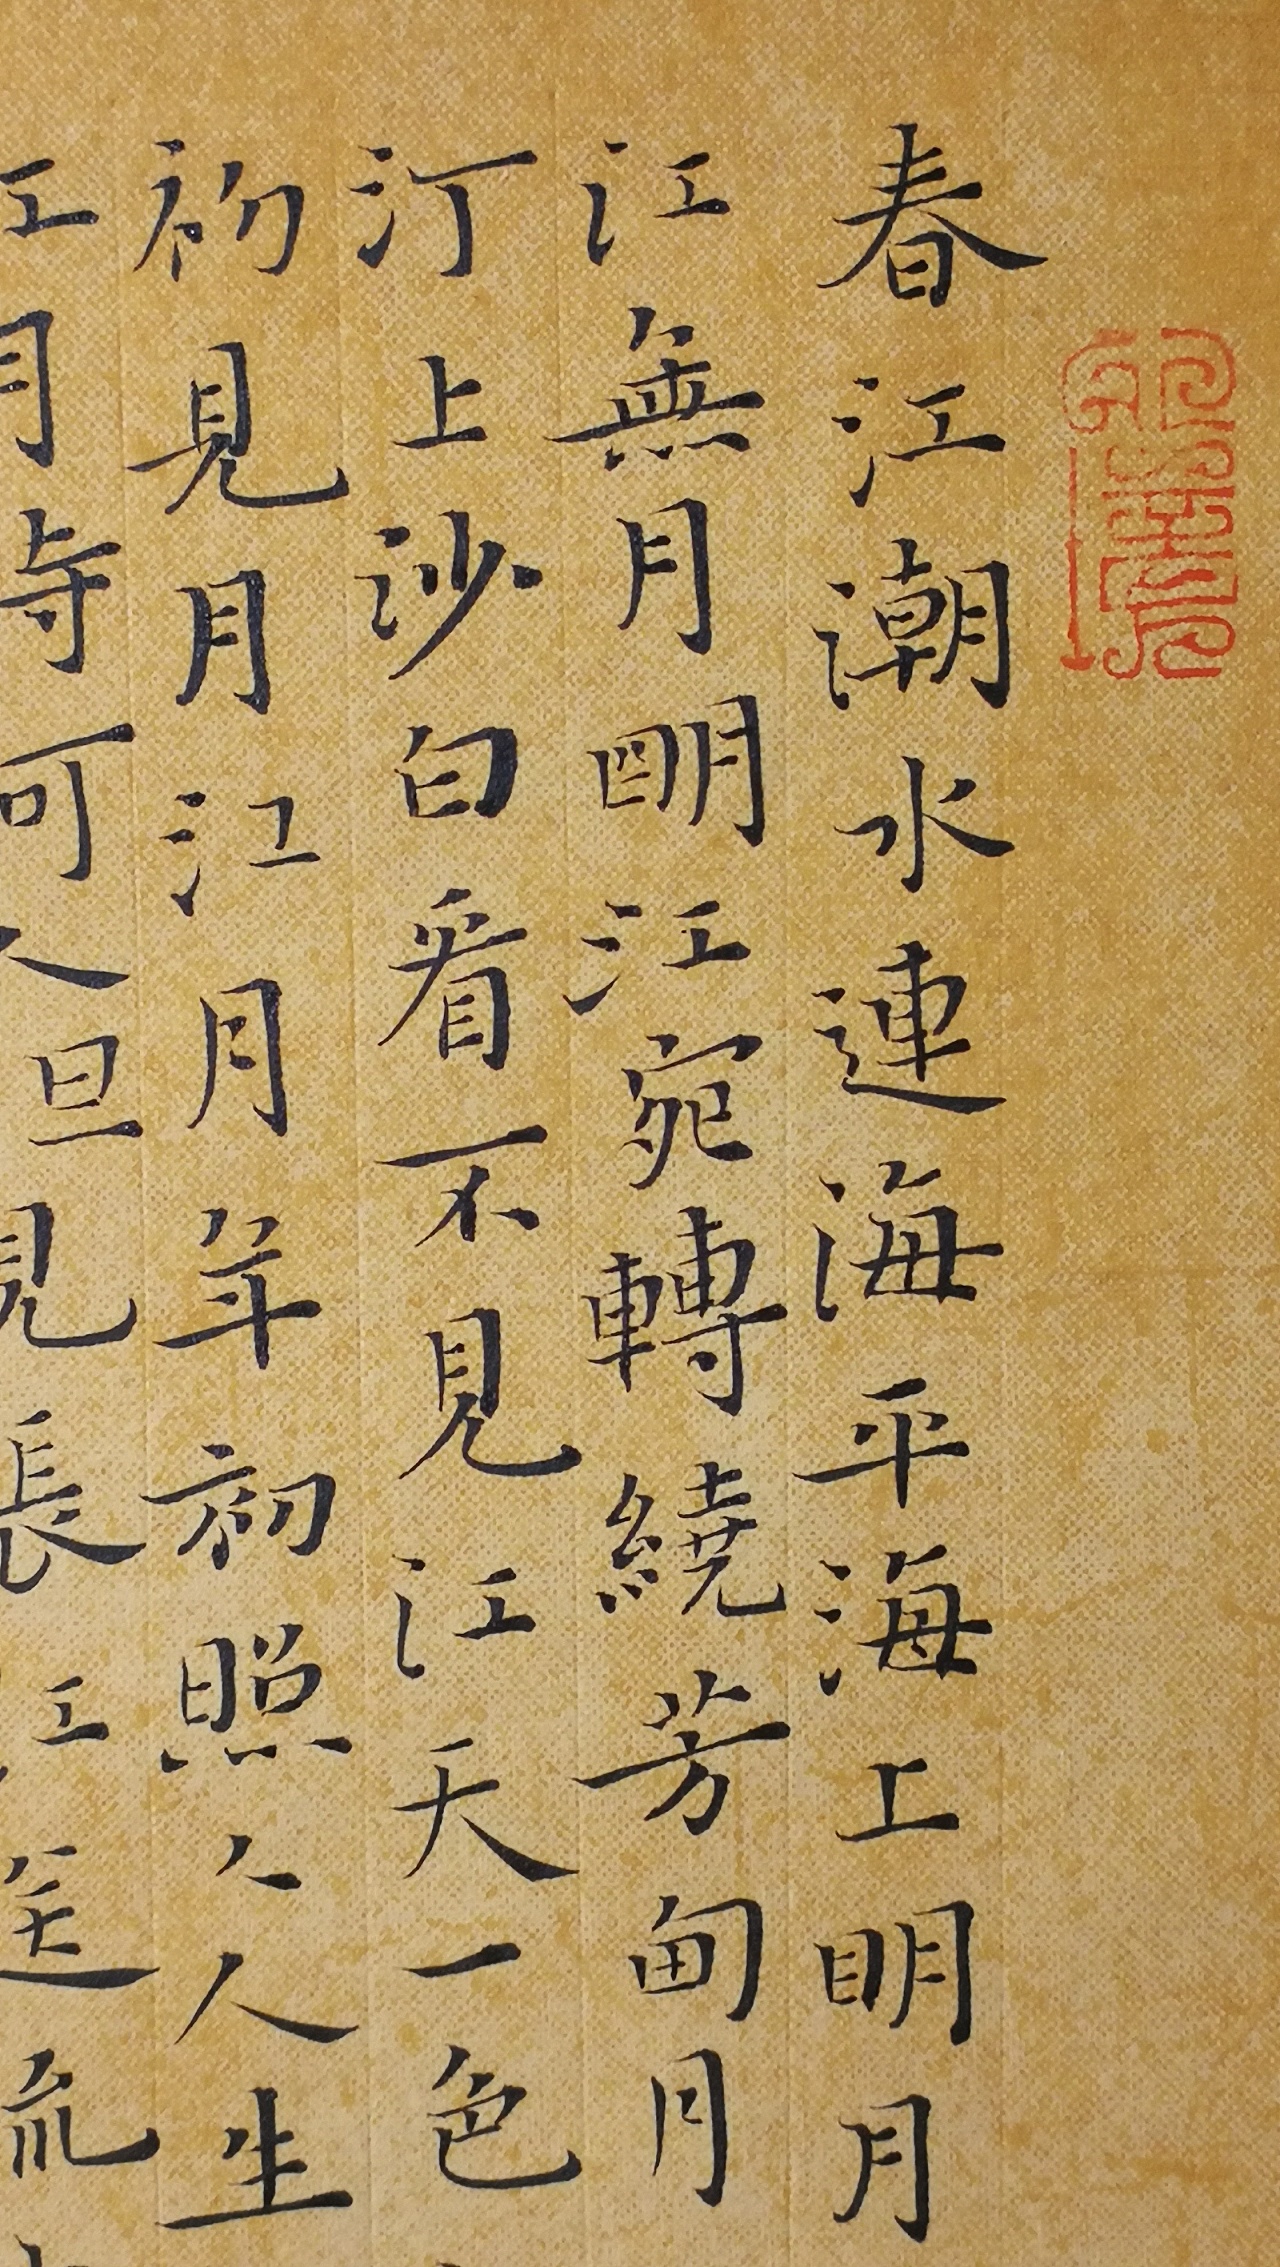 春江潮水連海平海上明月
江無月明江宛轉繞芳甸月
汀上沙白看不見江天一色
初見月江月年初照人人生
江月待何人但見長江送流